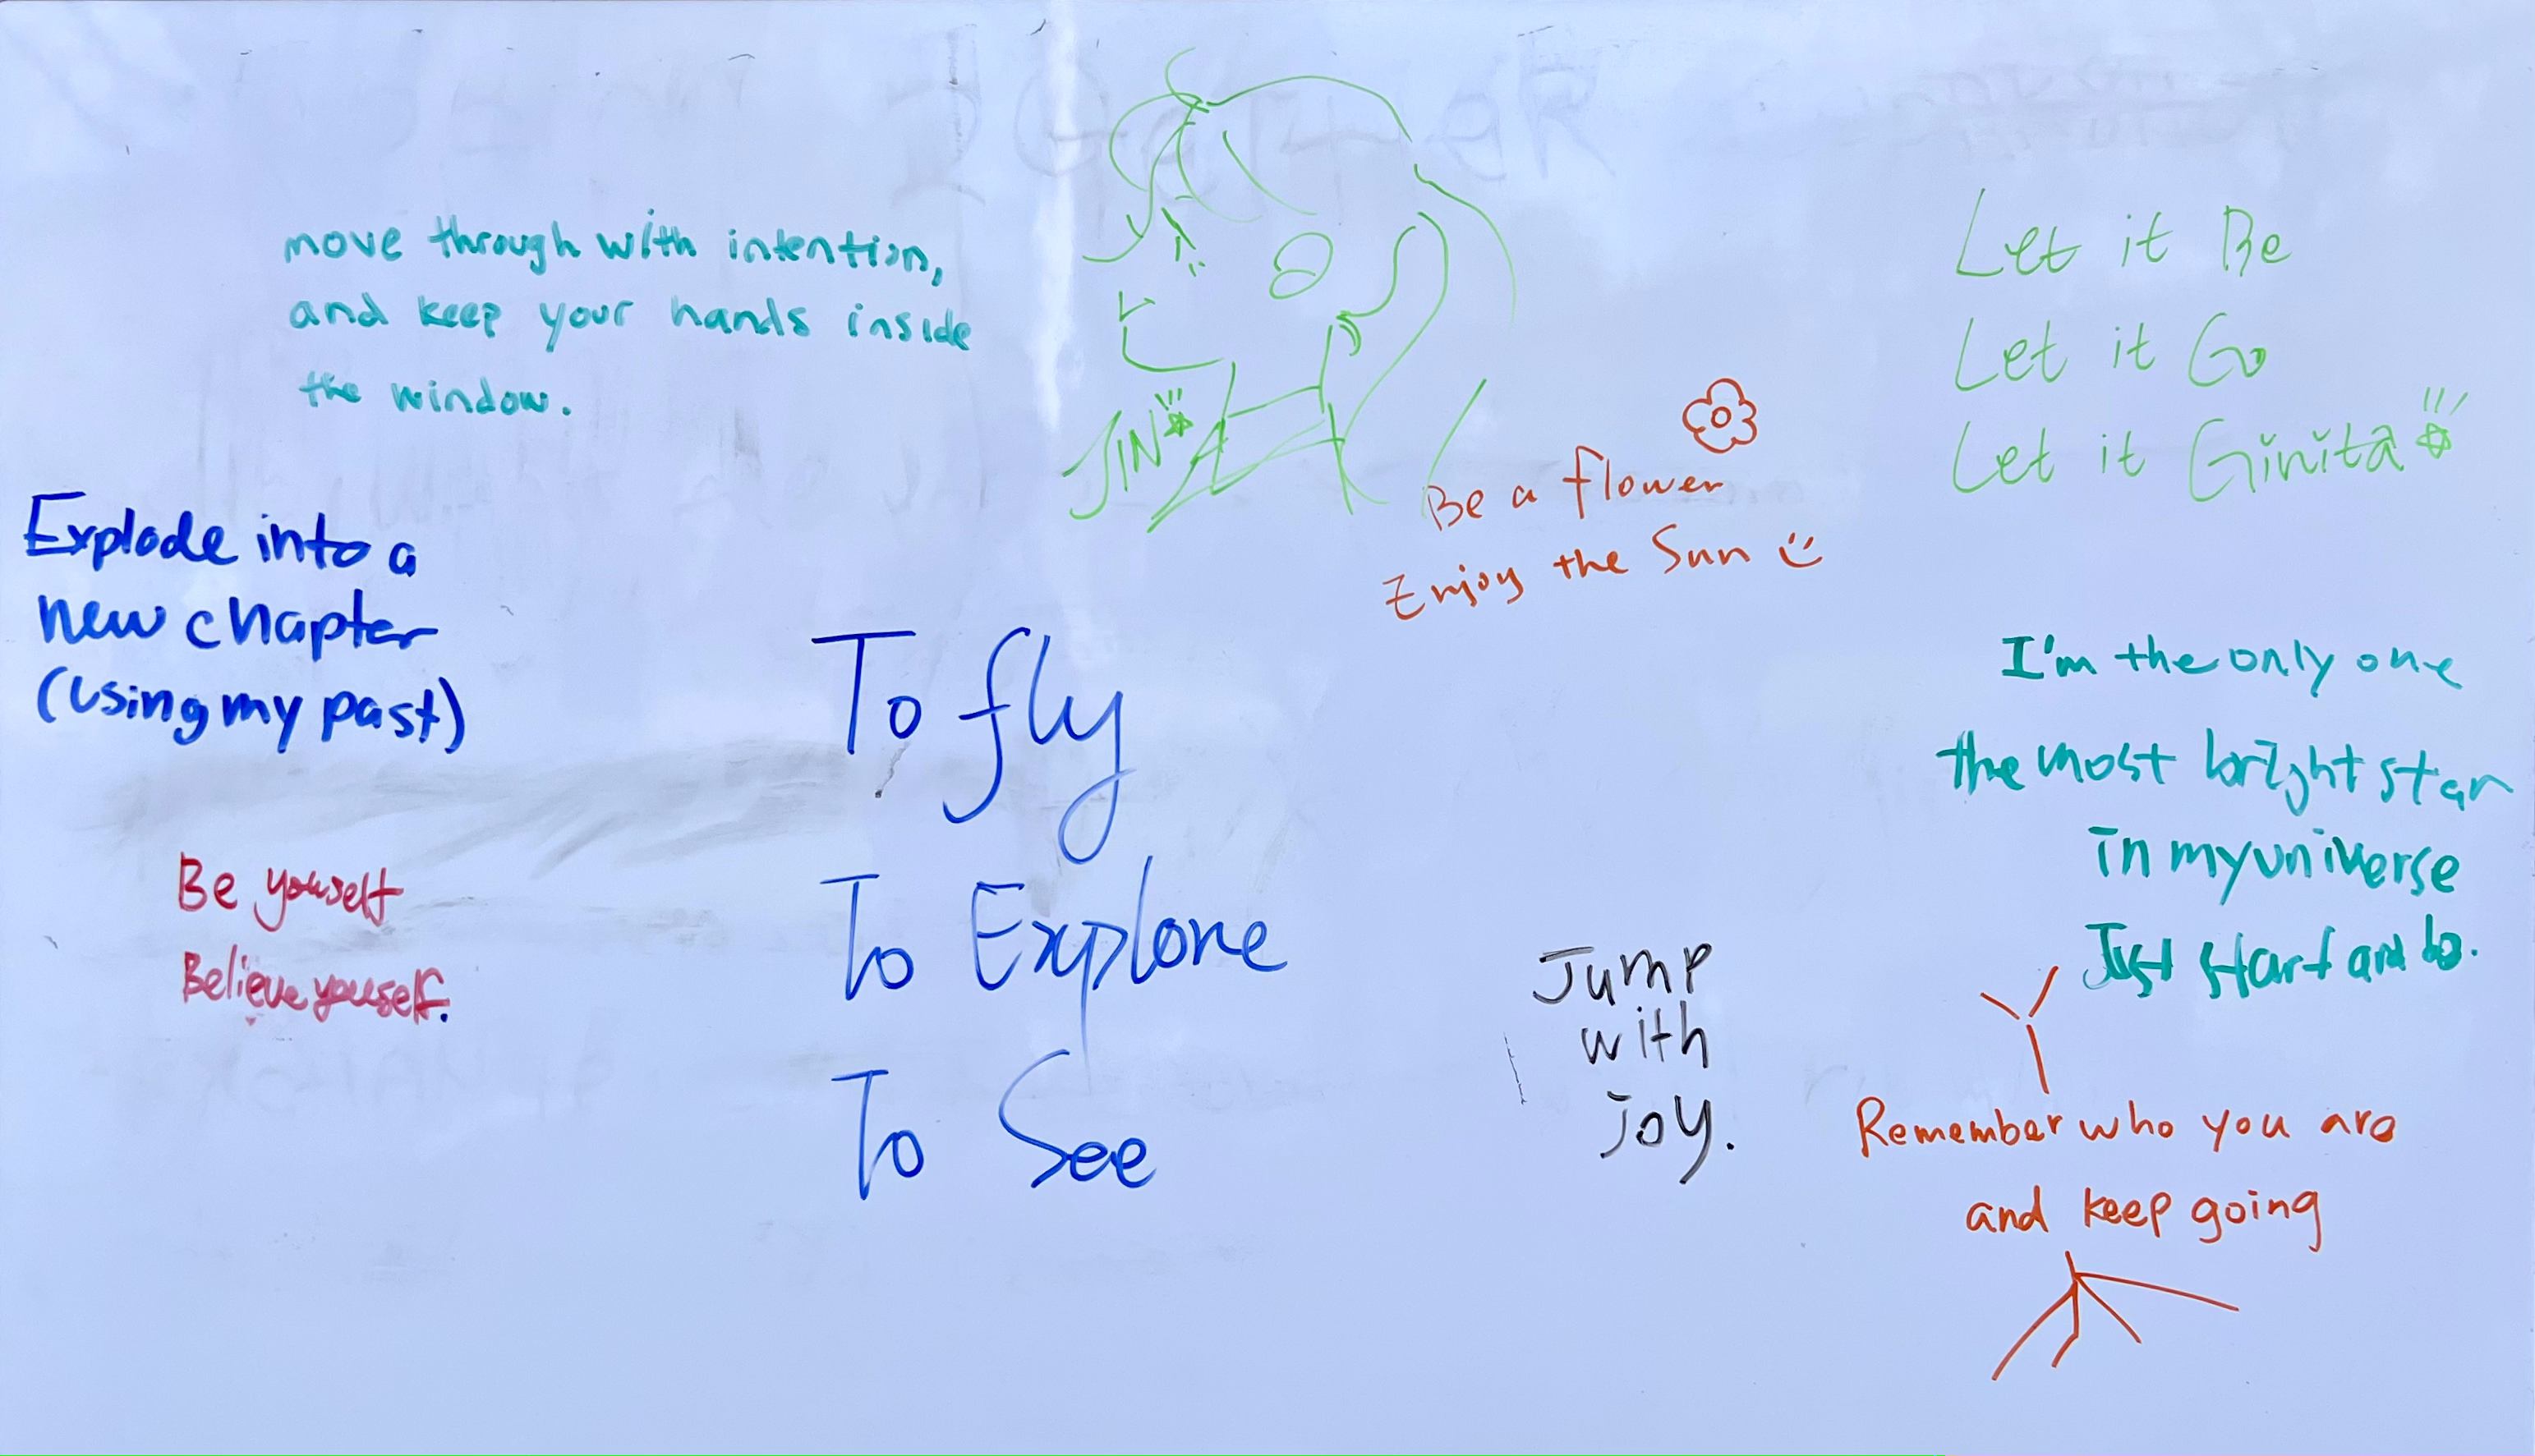 move through with intention,
and keep your hands inside
the window.
JIN
Let it Be
Let it Go
Let it Ginita
Be a flower
Enjoy the Sun
Explode into a
new chapter
(using my past)
To fly
To Explore
To See
I'm the only one
the most bright star
in my universe
Just start and do.
Be youself
Believe youself.
Jump
with
joy.
Remember who you are
and keep going